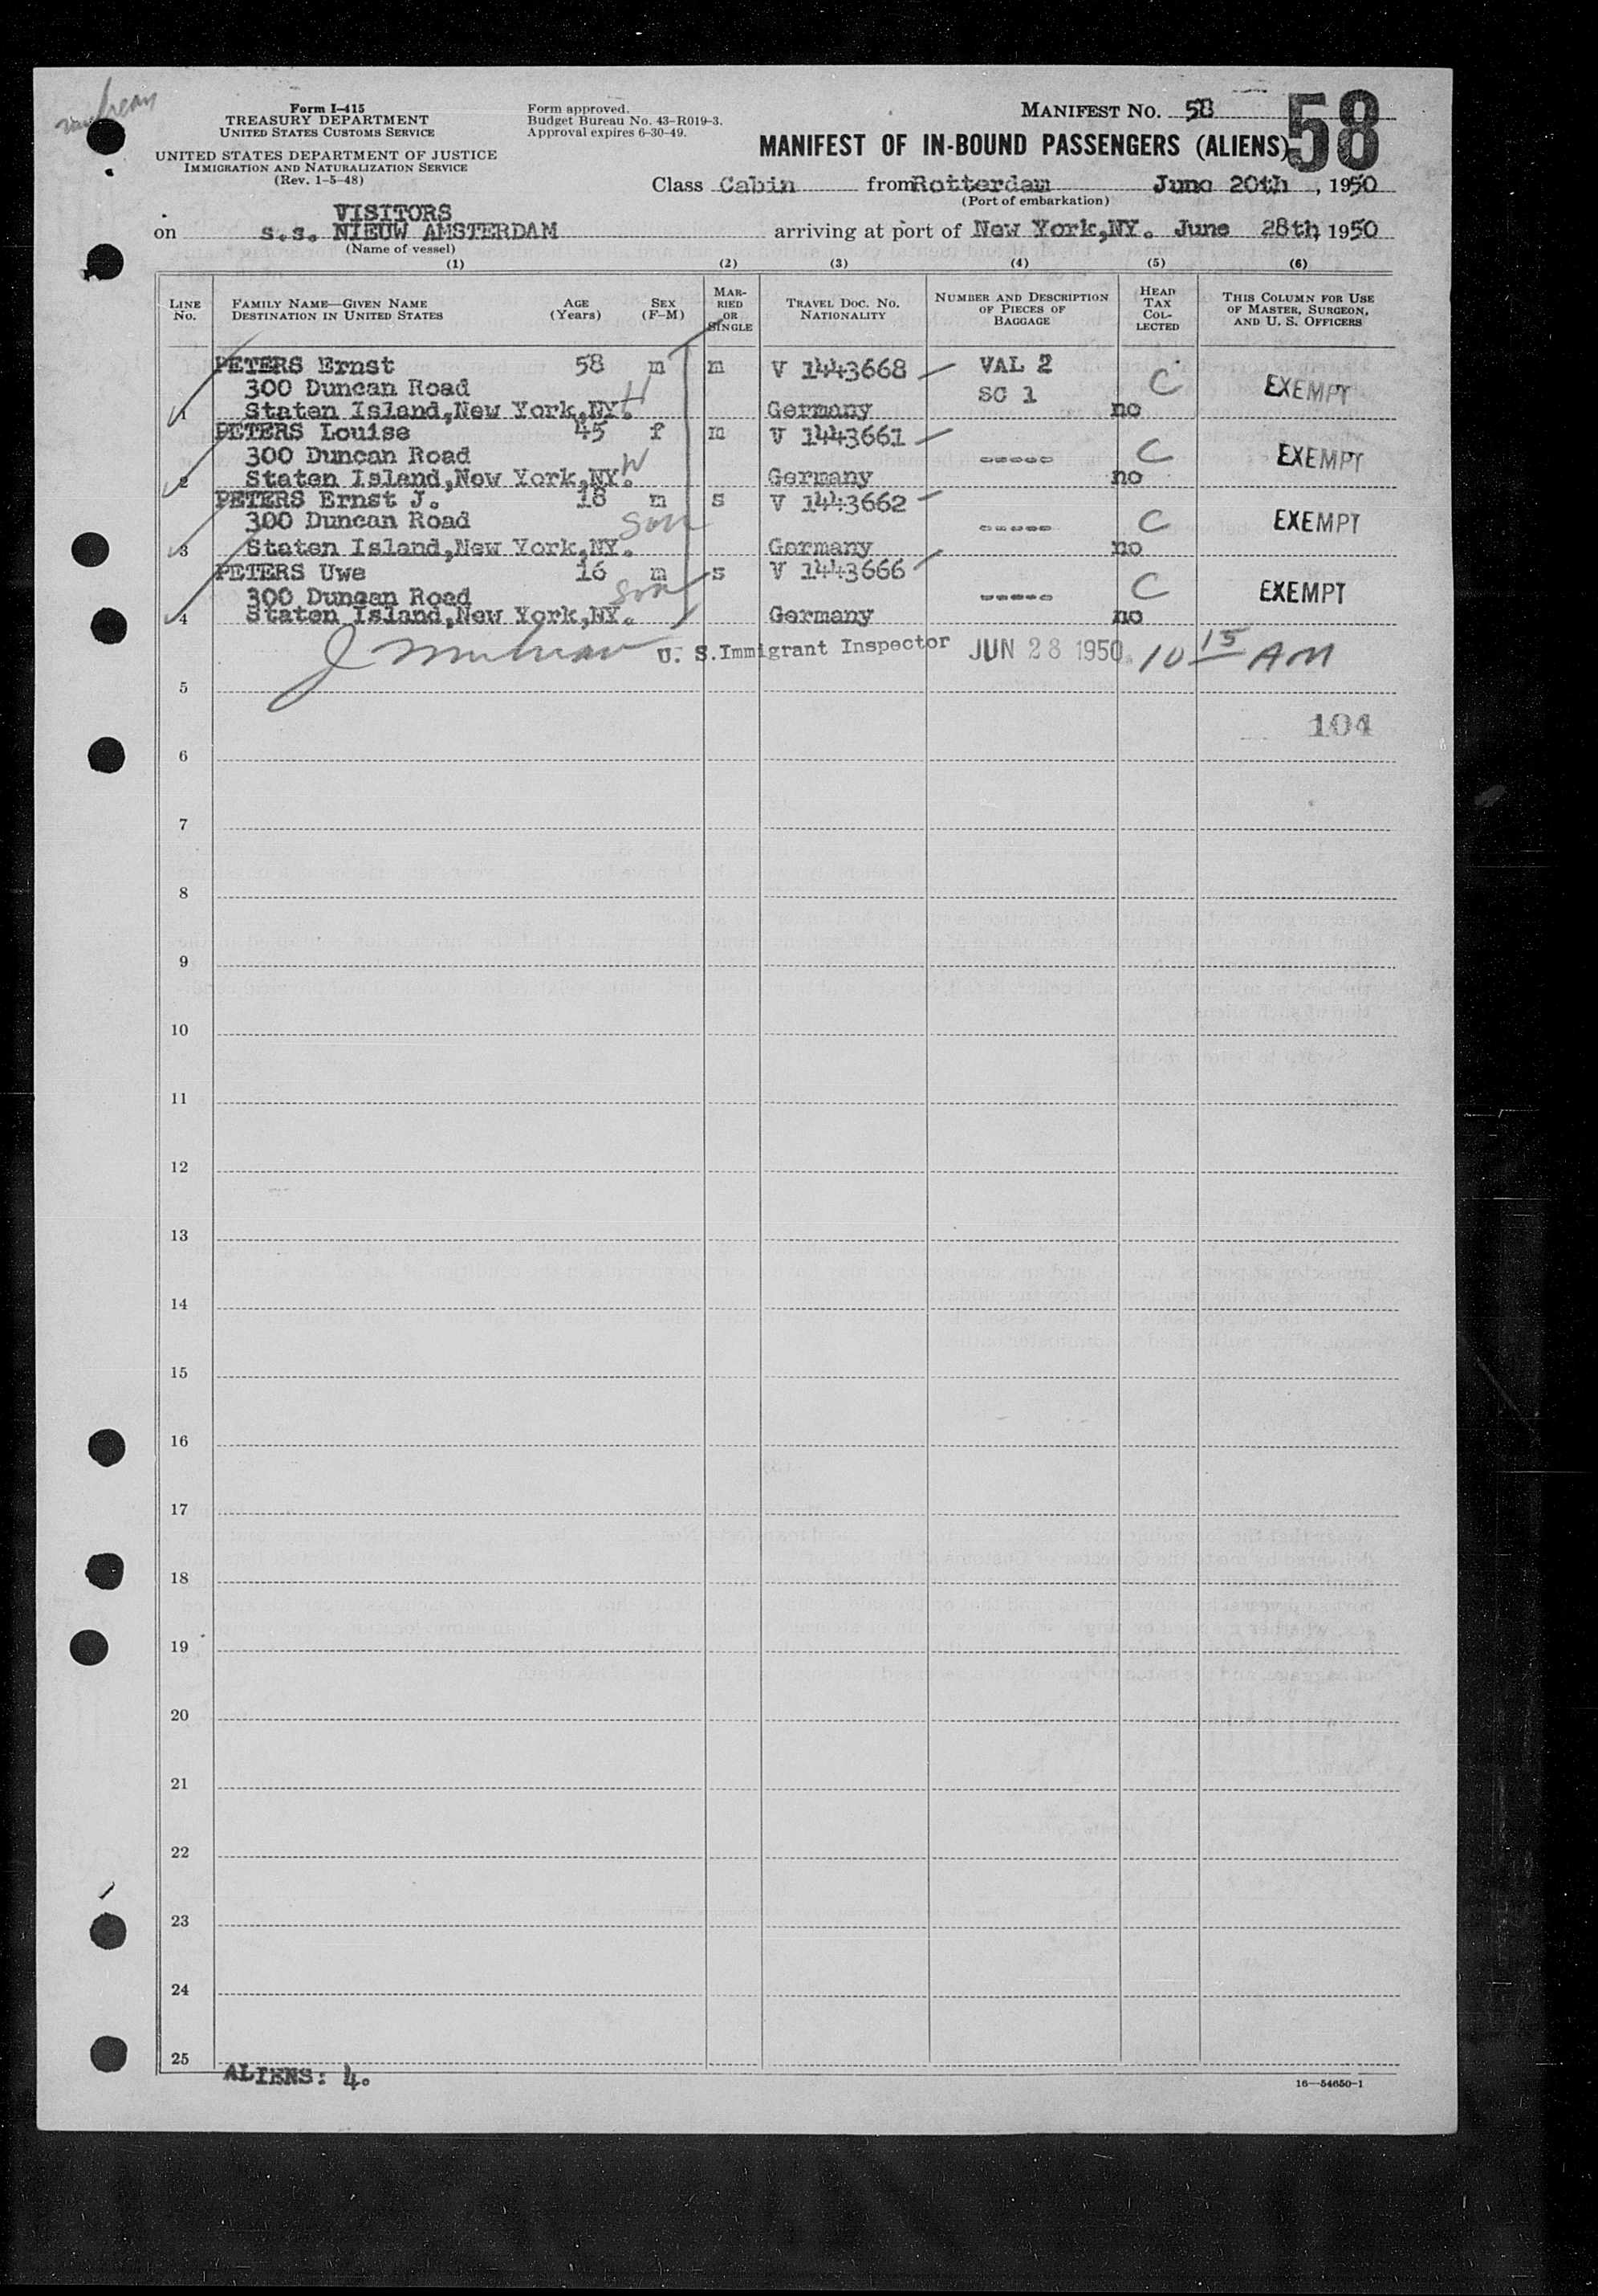 Form I-415
TREASURY DEPARTMENT
UNITED STATES CUSTOMS SERVICE
UNITED STATES DEPARTMENT OF JUSTICE
IMMIGRATION AND NATURALIZATION SERVICE
(Rev. 1-5-48)
Form approved.
Budget Bureau No. 43-R019-3.
Approval expires 6-30-49.
MANIFEST NO. 58
58
MANIFEST OF IN-BOUND PASSENGERS (ALIENS)
Class Cabin from Rotterdam June 20th, 1950
(Port of embarkation)
VISITORS
on s.s. NIEUW AMSTERDAM arriving at port of New York,NY. June 28th, 1950
(Name of vessel)
(1) (2) (3) (4) (5) (6)
LINE NO. FAMILY NAME—GIVEN NAME DESTINATION IN UNITED STATES AGE (Years) SEX (F-M) MARRIED OR SINGLE TRAVEL DOC. NO. NATIONALITY NUMBER AND DESCRIPTION OF PIECES OF BAGGAGE HEAD TAX COLLECTED THIS COLUMN FOR USE OF MASTER, SURGEON, AND U. S. OFFICERS
PETERS Ernst 58 m m V 1443668 VAL 2
300 Duncan Road SC 1 C EXEMPT
1 Staten Island,New York,NY. H Germany no
PETERS Louise 45 f m V 1443661
300 Duncan Road ----- C EXEMPT
2 Staten Island,New York,NY. W Germany no
PETERS Ernst J. 18 m s V 1443662
300 Duncan Road Son ----- C EXEMPT
3 Staten Island,New York,NY. Germany no
PETERS Uwe 16 m s V 1443666
300 Duncan Road Son ----- C EXEMPT
4 Staten Island,New York,NY. Germany no
U. S. Immigrant Inspector JUN 28 1950 10 15 AM
5
104
6
7
8
9
10
11
12
13
14
15
16
17
18
19
20
21
22
23
24
25
ALIENS: 4.
16—54650-1